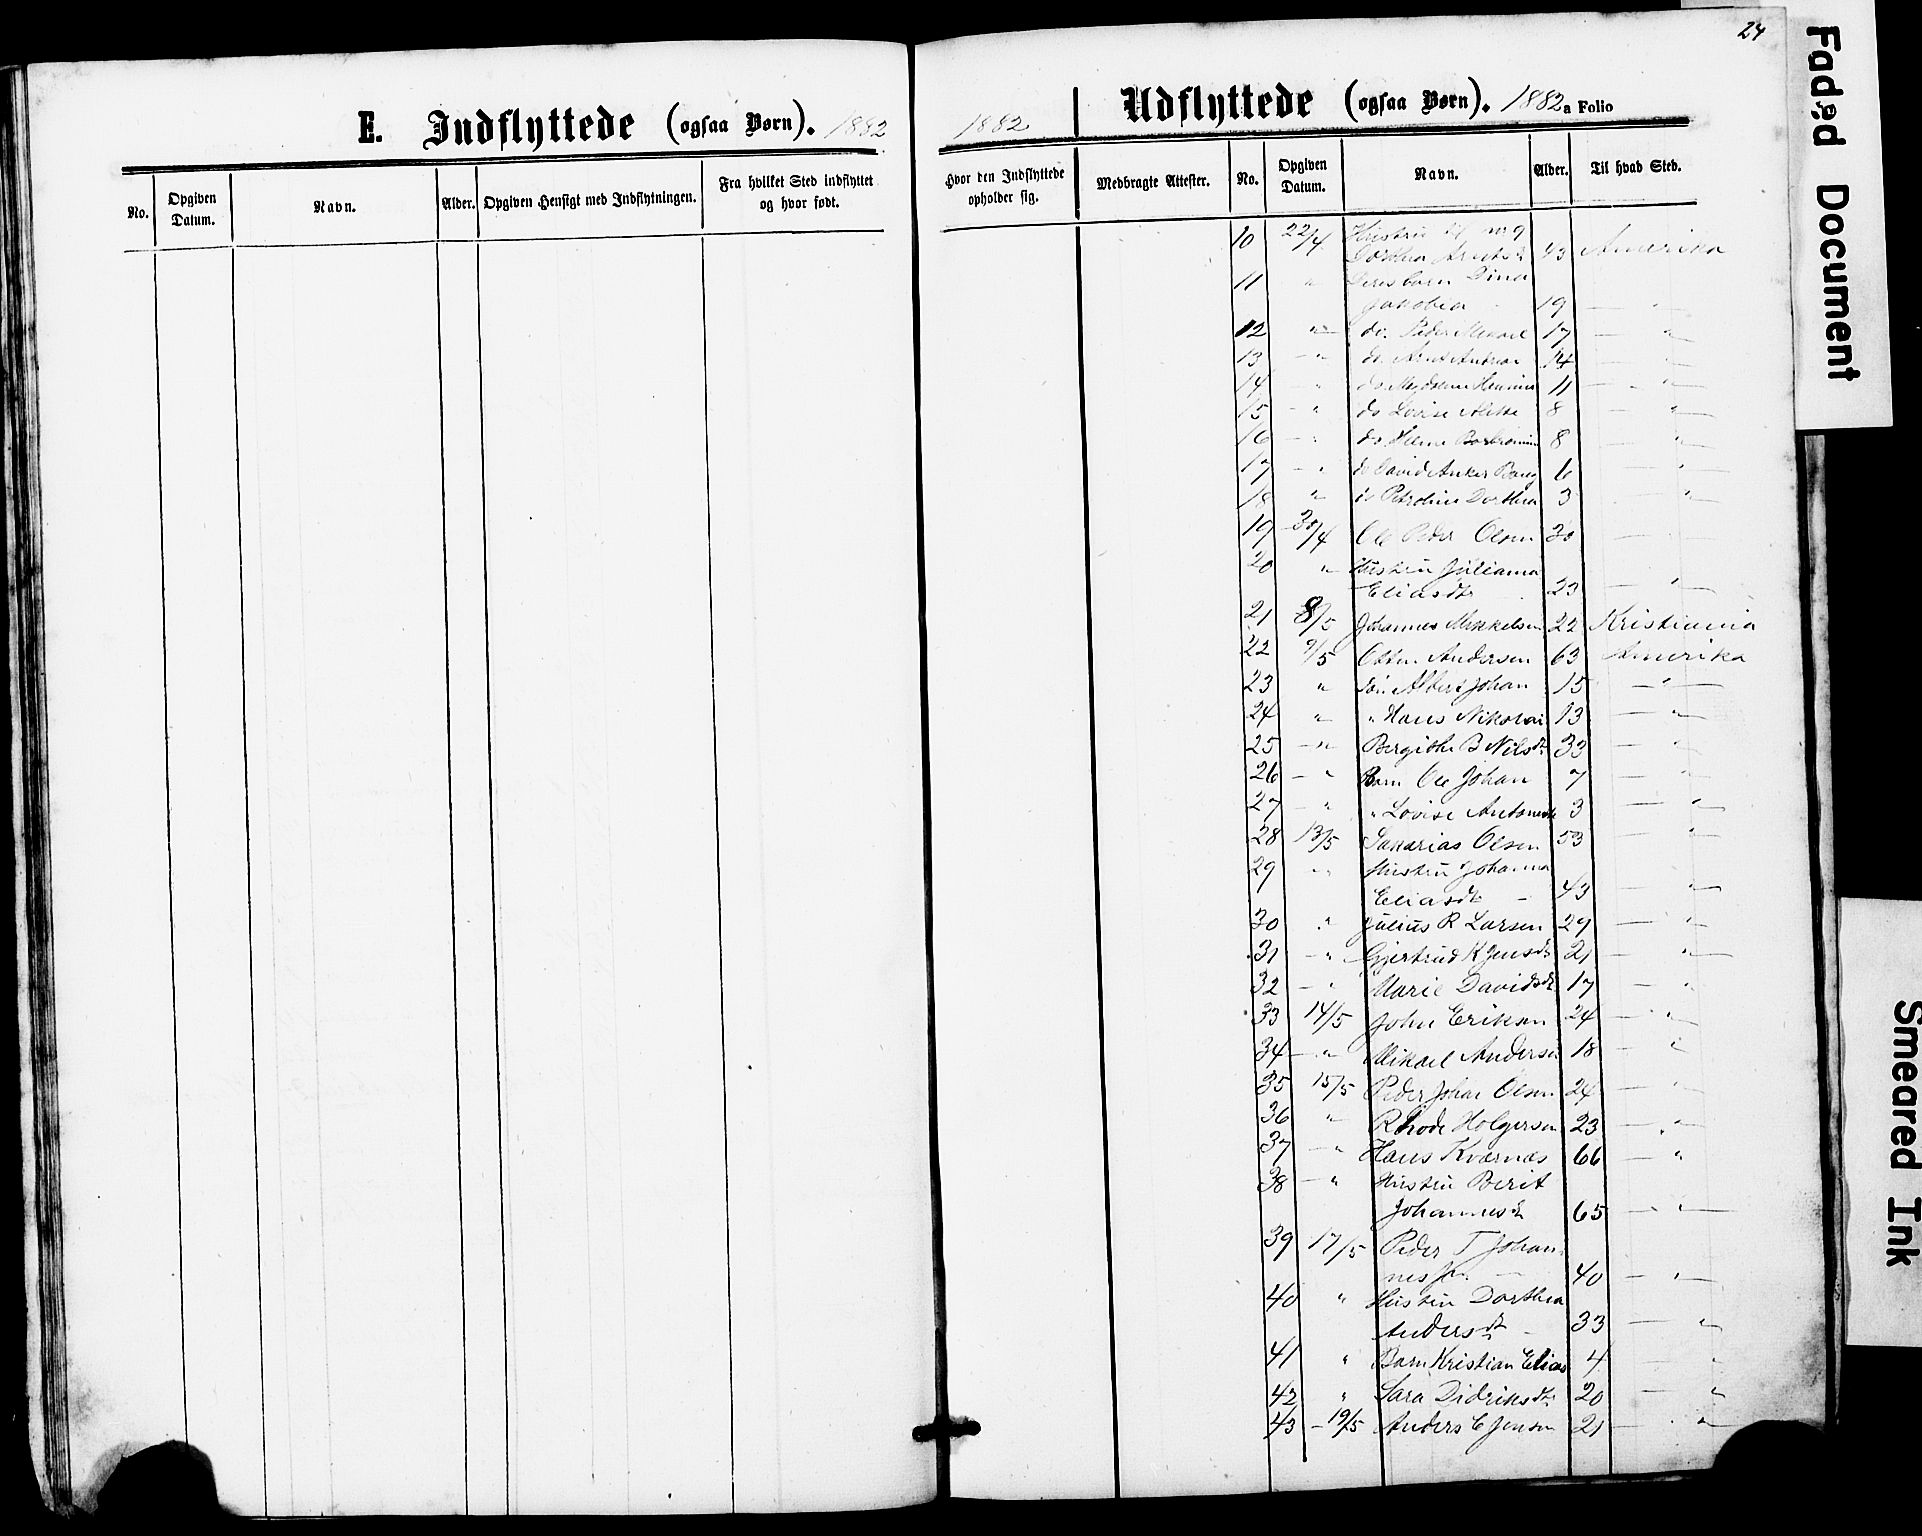 24
E. Indflyttede (ogsaa Børn). 1882
1882
Udflyttede (ogsaa Børn). 1882 a Folio
No. Opgiven Datum. Navn. Alder. Opgiven Hensigt med Indflytningen. Fra hvilket Sted indflyttet og hvor født.
Hvor den Indflyttede opholder sig. Medbragte Attester. No. Opgiven Datum. Navn. Alder. Til hvad Sted.
10 22/4 Hustru til no 9
43 Amerika
11 " Deres barn Dina
Jakobia 19 — " —
12 " do. Peder Mikael 17 — " —
13 — " do. Arnt Andreas 14 — " —
14 — " do Magdalena 11 — " —
15 — " do Lovise 8 — " —
16 — " do. 8 — " —
17 — " do David Anker Bang 6 — " —
18 " do Petroline Dorthea 3 — " —
19 30/4 Ole Peder Olsen 30 — " —
20 " Hustru Juliana
Eliasdtr 23 — " —
21 8/5 Johannes Mikkelsen 22 Kristiania
22 9/5 Andersen 63 Amerika
23 " Søn Albert Johan 15 — " —
24 " " Hans Nikolai 13 — " —
25 — " Bergithe B Nilsdtr 33 — " —
26 — " Barn Ole Johan 7 — " —
27 — " " Lovise 3 — " —
28 13/5 Sakarias Olsen 53 — " —
29 " Hustru Johanna
Eliasdtr 43 — " —
30 " Julius R Larsen 29 — " —
31 — " Gjertrud K Jensdtr 21 — " —
32 — " Marie Davidsdtr 17 — " —
33 14/5 John Eriksen 24 — " —
34 — " Mikael Andersen 18 — "
35 15/5 Peder Johan Olsen 24 — " —
36 " Rhode Holgersen 23 — " —
37 — " Hans Kværnæs 66 — "
38 — " Hustru Berit
Johannesdtr 65 — " —
39 17/5 Peder T Johan-
nessen 40 — " —
40 " Hustru Dorthea
Andersdtr 33 — "
41 " Barn Kristian Elias 4 — "
42 " Sara Didriksdtr 20 — "
43 — 19/5 Anders E Jensen 21 — " —
Faded Document
Smeared Ink